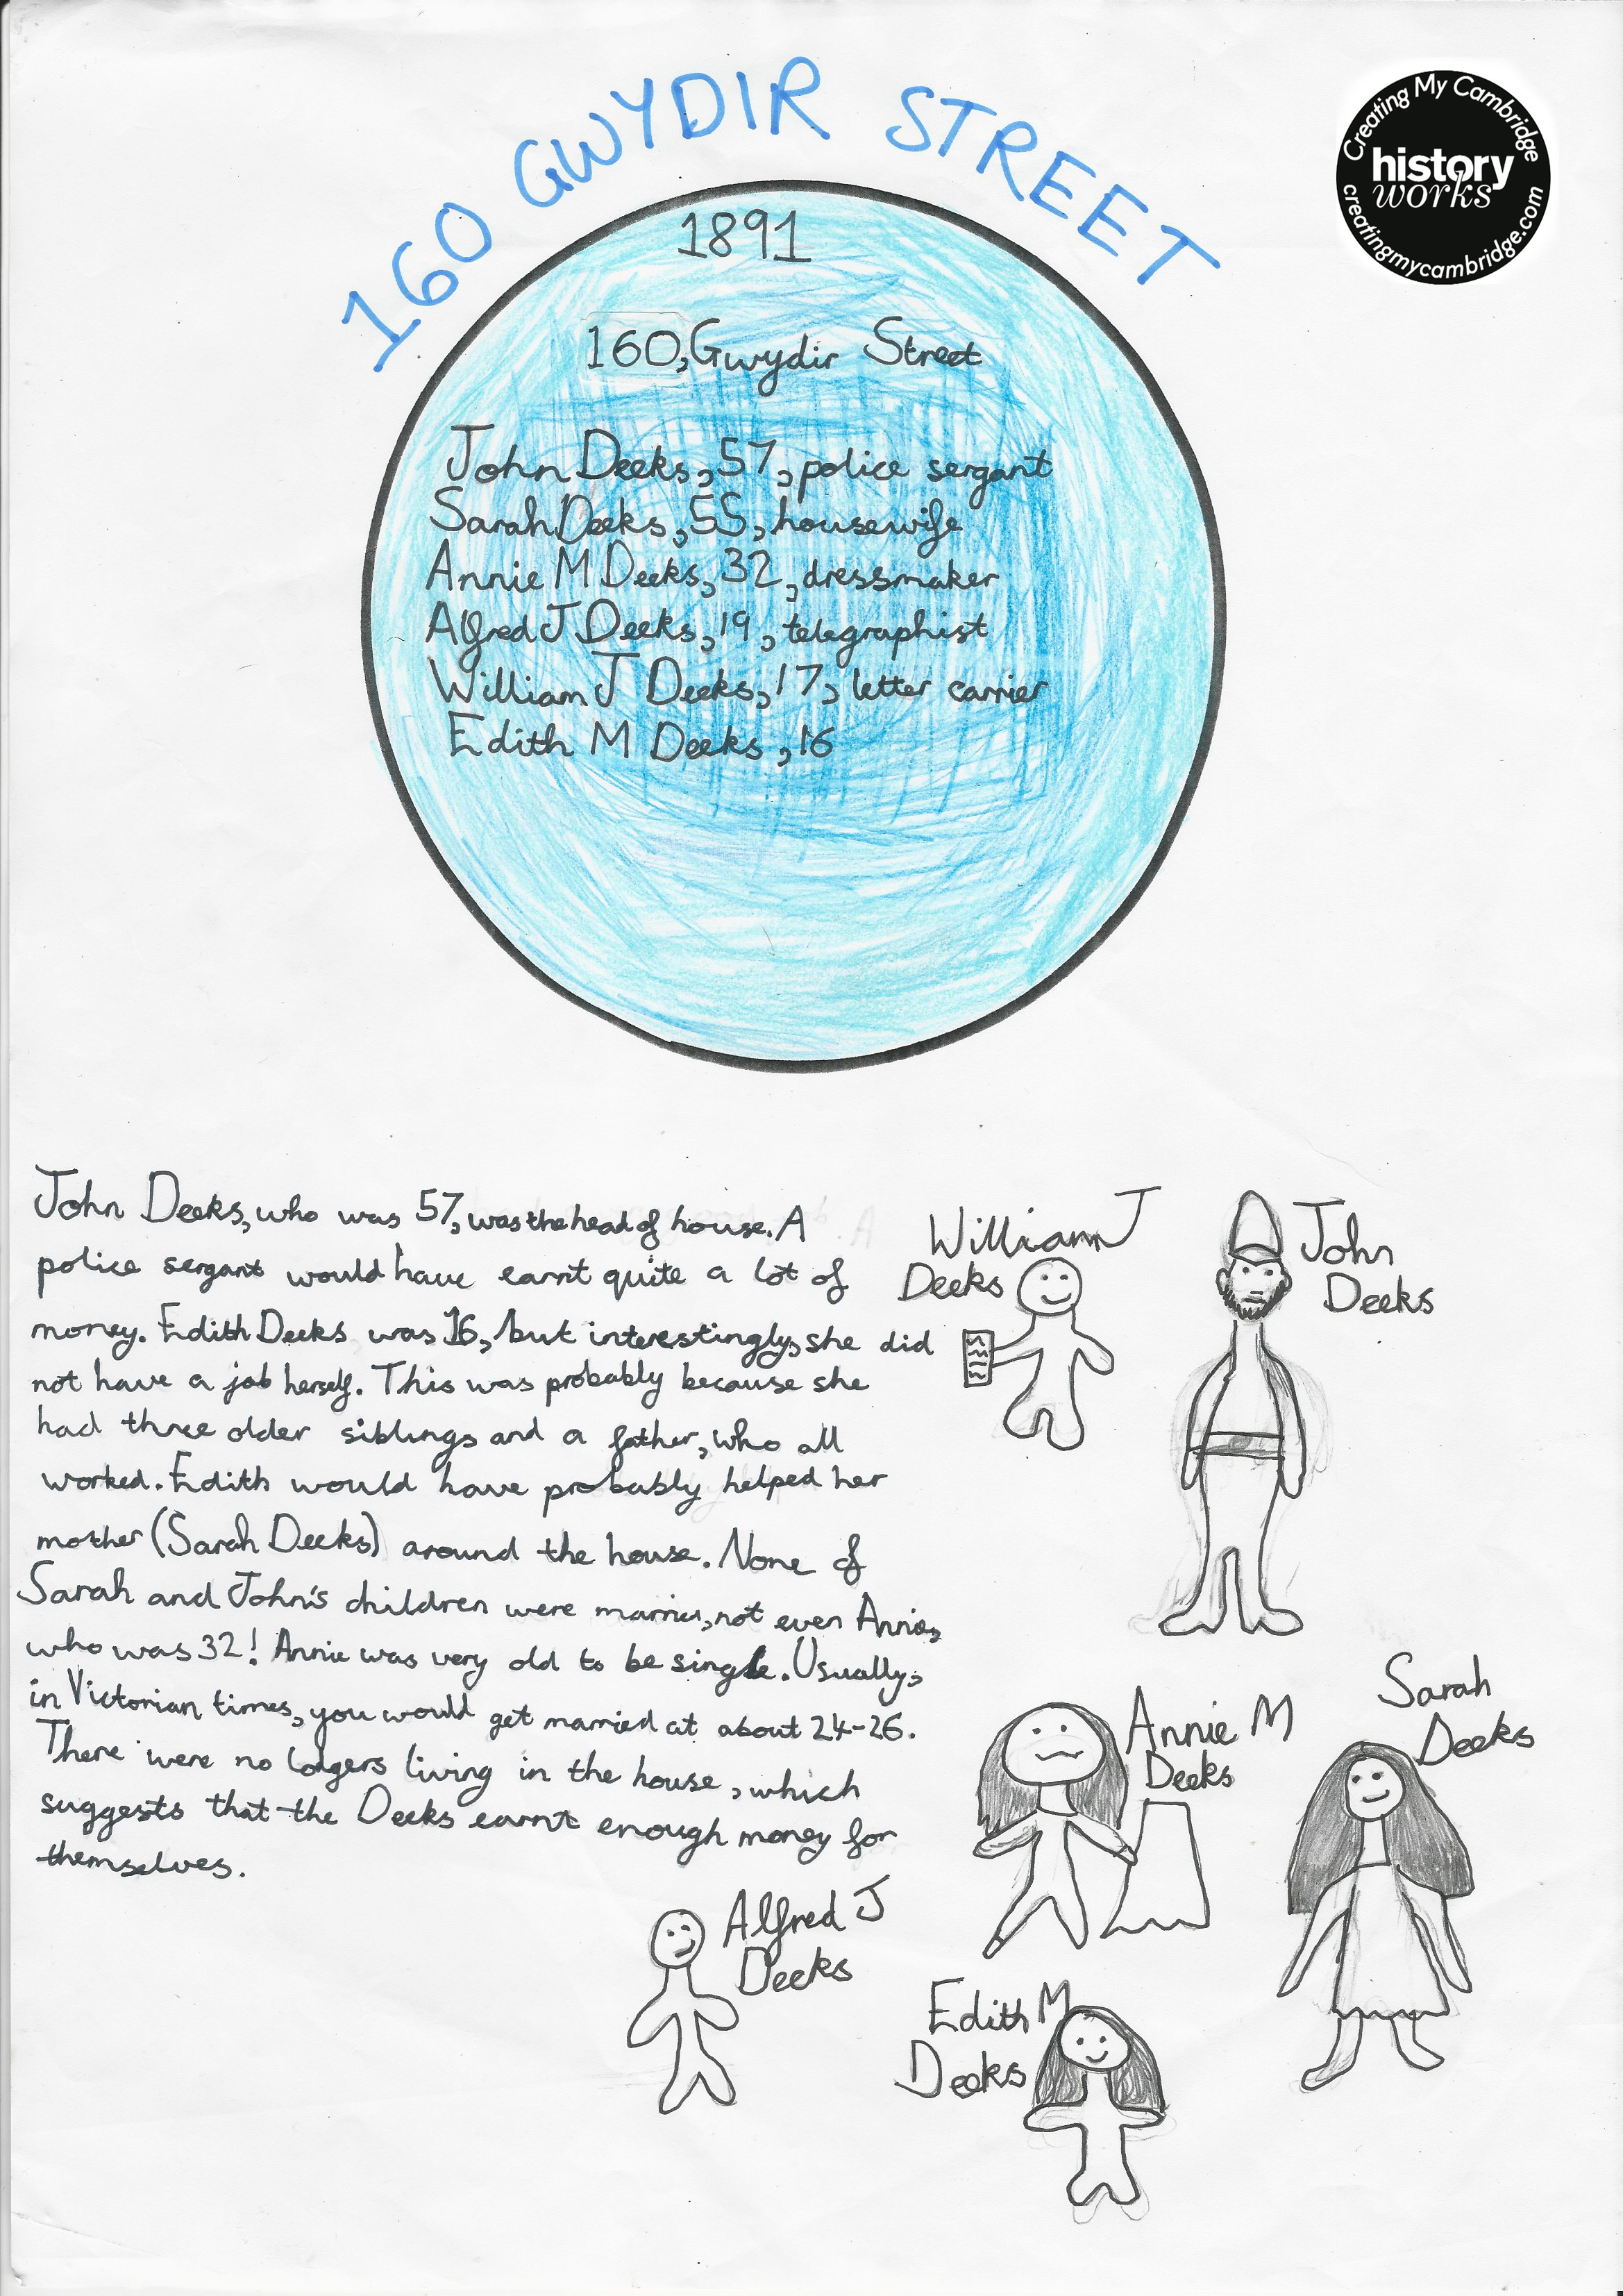 160 GWYDIR STREET
Creating My Cambridge
history
works
creatingmycambridge.com
1891
160, Gwydir Street
John Deeks, 57, police sergant
Sarah Deeks, 55, housewife
Annie M Deeks, 32, dressmaker
Alfred J Deeks, 19, telegraphist
William J Deeks, 17, letter carrier
Edith M Deeks, 16
John Deeks, who was 57, was the head of house. A
police sergant would have earnt quite a lot of
money. Edith Deeks was 16, but interestingly, she did
not have a job herself. This was probably because she
had three older siblings and a father, who all
worked. Edith would have probably helped her
mother (Sarah Deeks) around the house. None of
Sarah and John's children were married, not even Annie,
who was 32! Annie was very old to be single. Usually,
in Victorian times, you would get married at about 24-26.
There were no lodgers living in the house, which
suggests that the Deeks earnt enough money for
themselves.
William J
Deeks
John
Deeks
Annie M
Deeks
Sarah
Deeks
Alfred J
Deeks
Edith M
Deeks